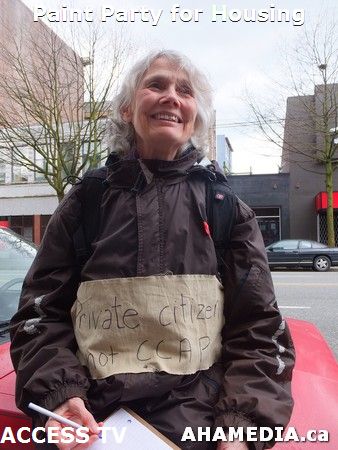 Paint Party for Housing
Private citizen
not CCAP
ACCESS TV
AHAMEDIA.ca